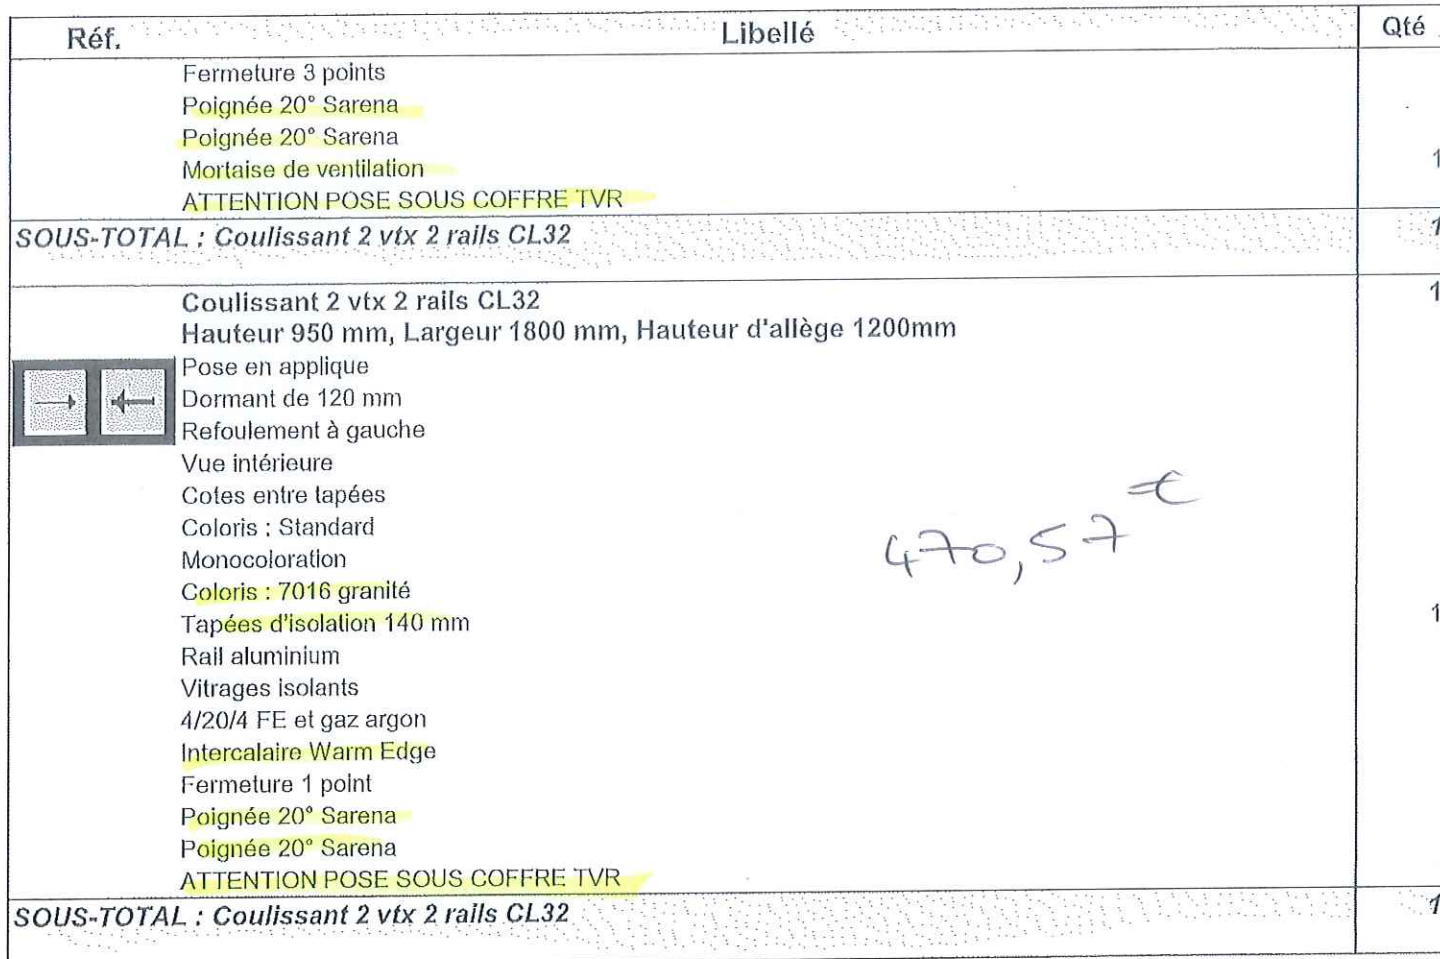 Réf. Libellé Qté
Fermeture 3 points
Poignée 20° Sarena
Poignée 20° Sarena
Mortaise de ventilation 1
ATTENTION POSE SOUS COFFRE TVR
SOUS-TOTAL : Coulissant 2 vtx 2 rails CL32 1
Coulissant 2 vtx 2 rails CL32 1
Hauteur 950 mm, Largeur 1800 mm, Hauteur d'allège 1200mm
Pose en applique
Dormant de 120 mm
Refoulement à gauche
Vue intérieure
Cotes entre tapées
Coloris : Standard
470,57 €
Monocoloration
Coloris : 7016 granité
Tapées d'isolation 140 mm 1
Rail aluminium
Vitrages isolants
4/20/4 FE et gaz argon
Intercalaire Warm Edge
Fermeture 1 point
Poignée 20° Sarena
Poignée 20° Sarena
ATTENTION POSE SOUS COFFRE TVR
SOUS-TOTAL : Coulissant 2 vtx 2 rails CL32 1